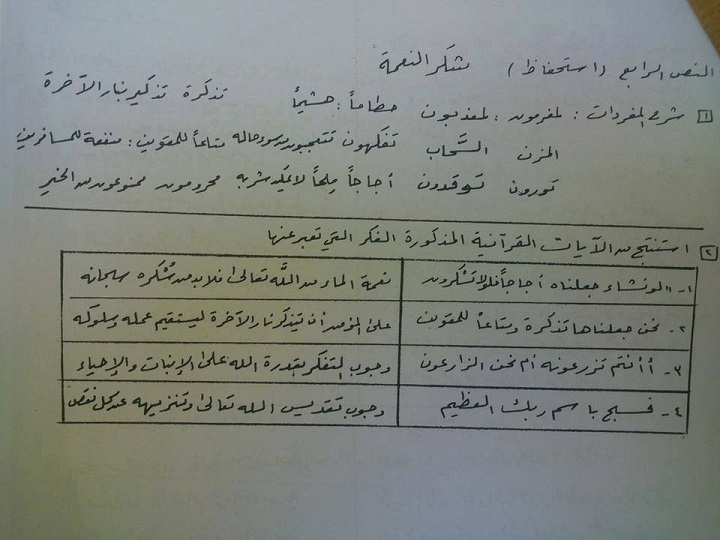 النص الرابع (استحفاظ) شكر النعمة
1 شرح المفردات : لمغرمون : لمعذبون حطاماً : هشيماً تذكرة تذكير بنار الآخرة
المزن السَّحاب تفكهون تتعجبون من سوء حاله متاعاً للمقوين : منفعة للمسافرين
تورون توقدون أجاجاً ملحاً لا يمكن شربه محرومون ممنوعون من الخير
2 استنتج من الآيات القرآنية المذكورة الفكر التي تعبر عنها
1- لو نشاء جعلناه أجاجاً فلولا تشكرون نعمة الماء من اللَّه تعالى فلابد من شُكره سبحانه
2- نحن جعلناها تذكرة ومتاعاً للمقوين على المؤمن أن يتذكر نار الآخرة ليستقيم عمله وسلوكه
3- أأنتم تزرعونه أم نحن الزارعون وجوب التفكر بقدرة الله على الإنبات والإحياء
4- فسبح باسم ربك العظيم وجوب تقديس الله تعالى وتنزيهه عن كل نقص